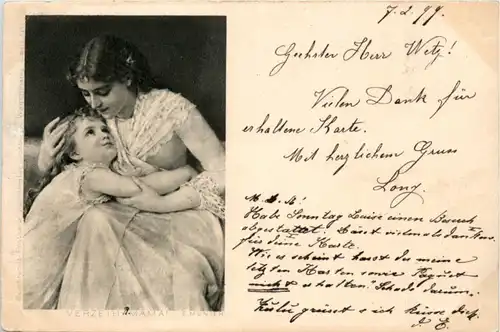 7.2.99
Geehrter Herr Wetz!
Vielen Dank für
erhaltene Karte.
Mit herzlichem Gruss
Long.
Habe Sonntag Luise einen Besuch
abgestattet. Lässt vielmals danken
für deine Karte.
Wie es scheint hast du meine
letzten Karten sowie Paquet
nicht erhalten. Schade darum.
grüsst
VERZEIH MAMA!